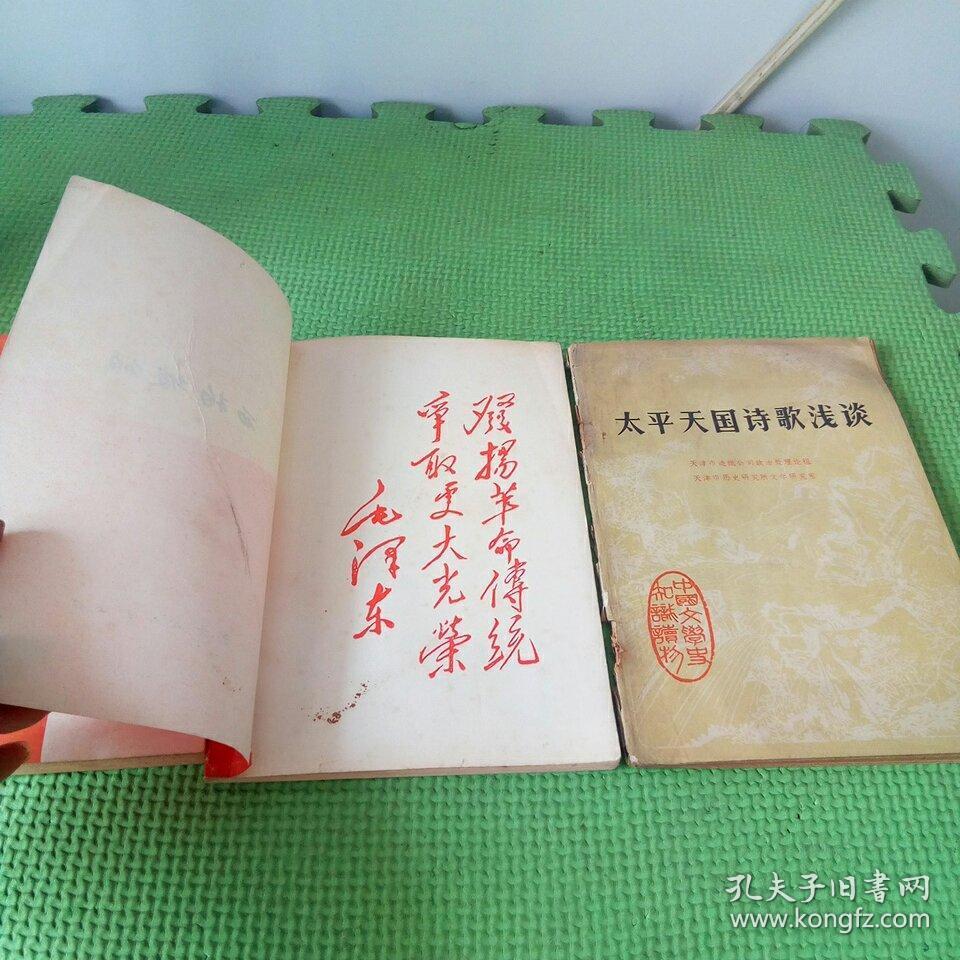 發揚革命傳統
爭取更大光榮
毛澤东
太平天国诗歌浅谈
天津市造纸公司政治处理论组
天津市历史研究所文学研究室
中國文學史
知識讀物
孔夫子旧書网
www.kongfz.com